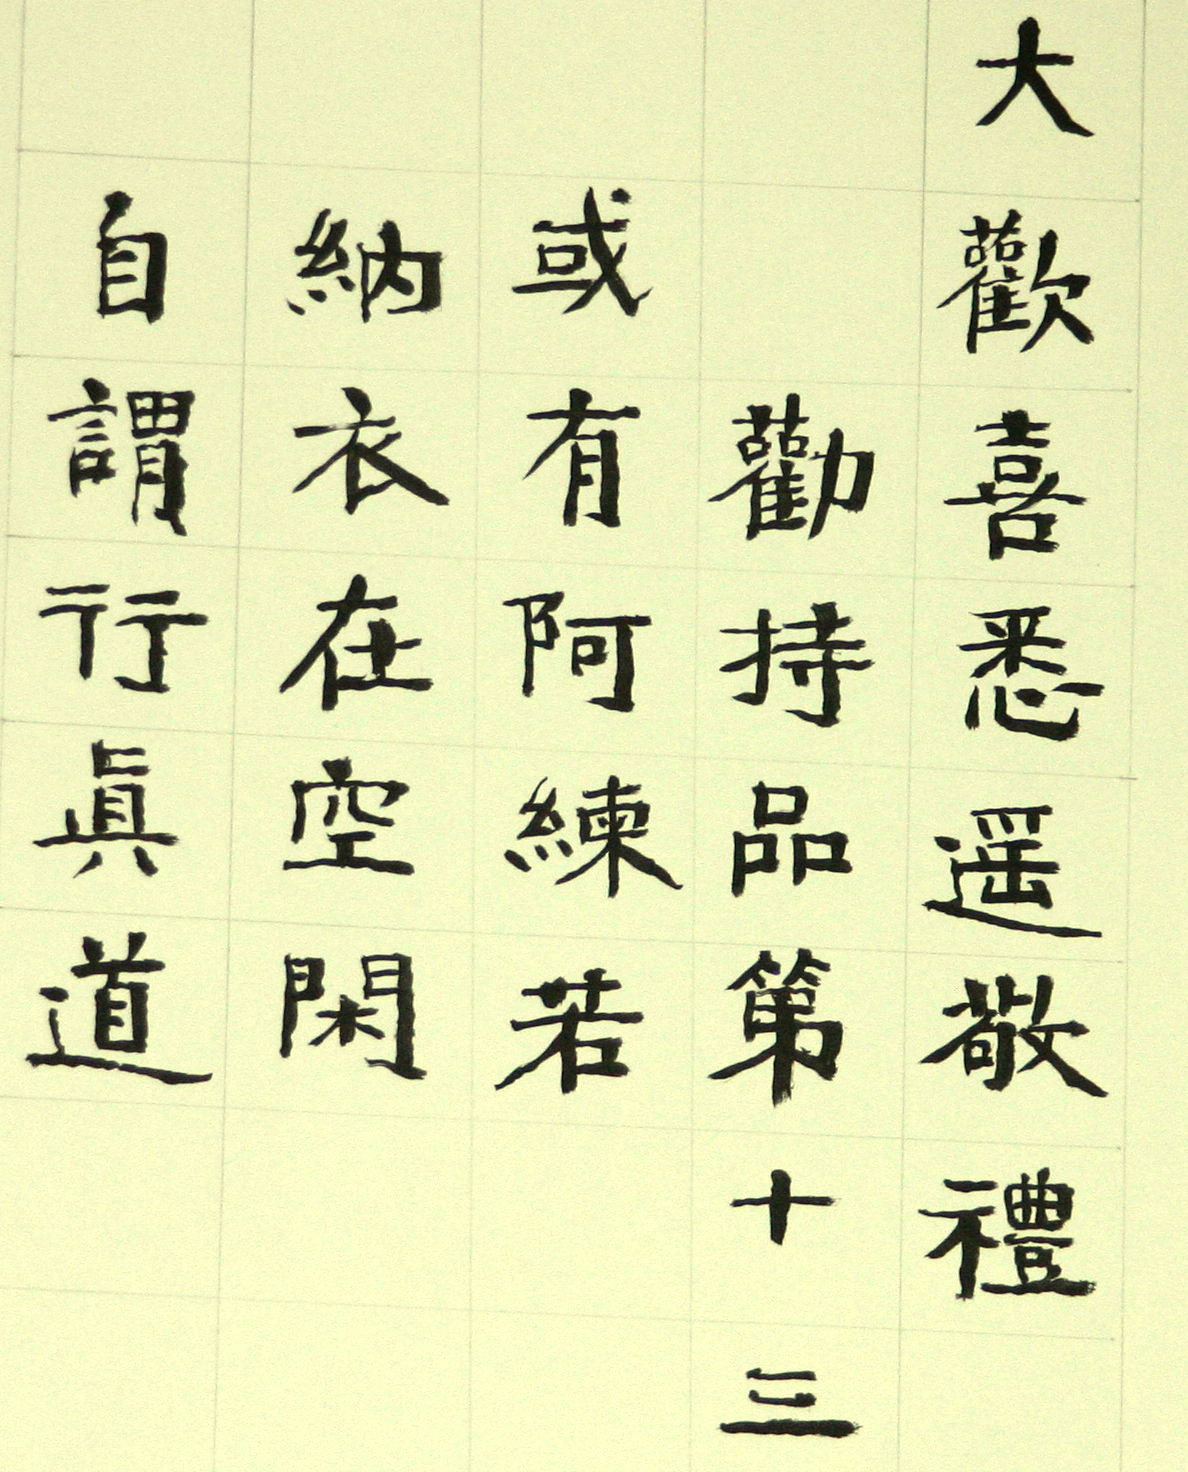 大歡喜悉遥敬禮
勸持品第十三
或有阿練若
納衣在空閑
自謂行眞道